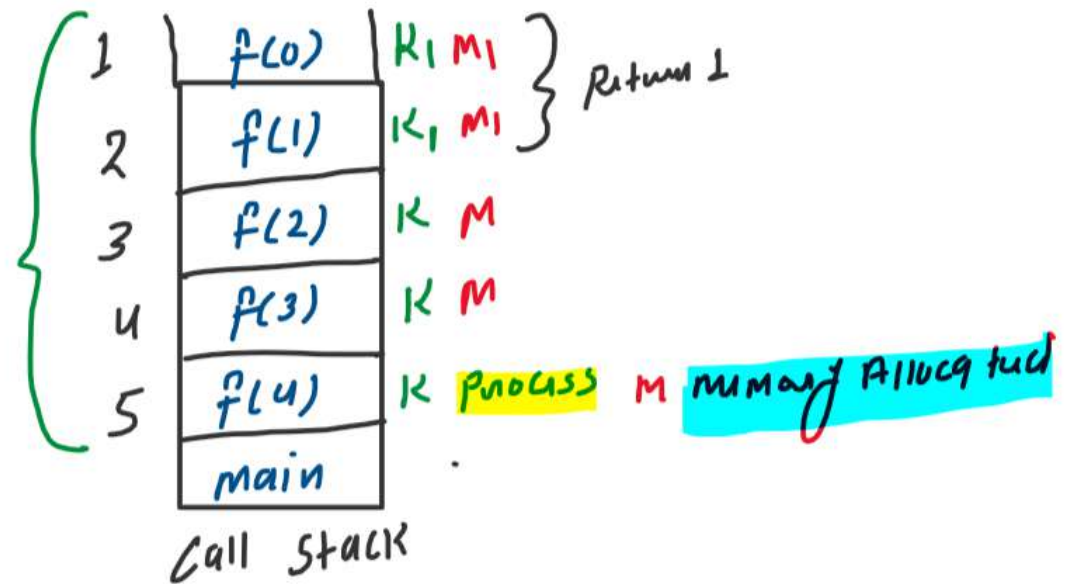 1 f(0) K1 M1
Return 1
2 f(1) K1 M1
3 f(2) K M
4 f(3) K M
5 f(4) K Process M Memory Allocated
main
Call Stack